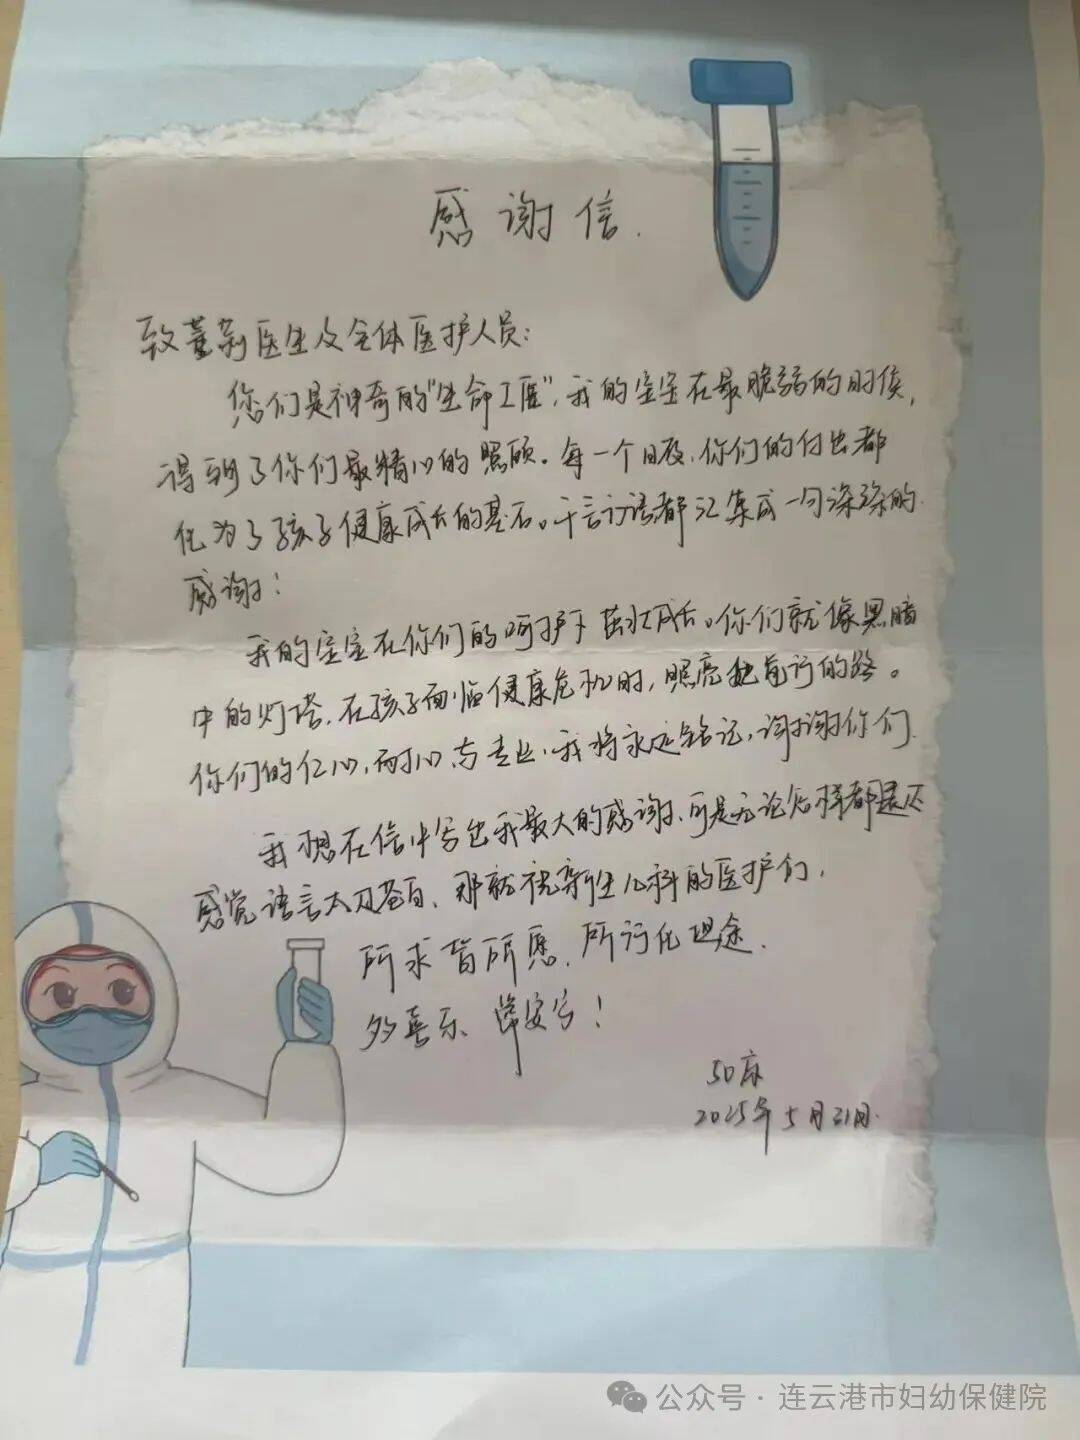 感谢信.
致董新医生及全体医护人员:
你们是神奇的"生命工匠",我的宝宝在最脆弱的时侯,
得到了你们最精心的照顾。每一个日夜,你们的付出都
化为了孩子健康成长的基石。千言万语都汇集成一句深深的
感谢!
我的宝宝在你们的呵护下茁壮成长。你们就像黑暗
中的灯塔,在孩子面临健康危机时,照亮她前行的路。
你们的仁心,耐心与专业,我将永远铭记,谢谢你们.
我想在信中写出我最大的感谢,可是无论怎样都是还
感觉语言太过苍白、那就祝新生儿科的医护们,
所求皆所愿,所行化坦途.
多喜乐、常安宁!
50床
2025年5月21日.
公众号·连云港市妇幼保健院